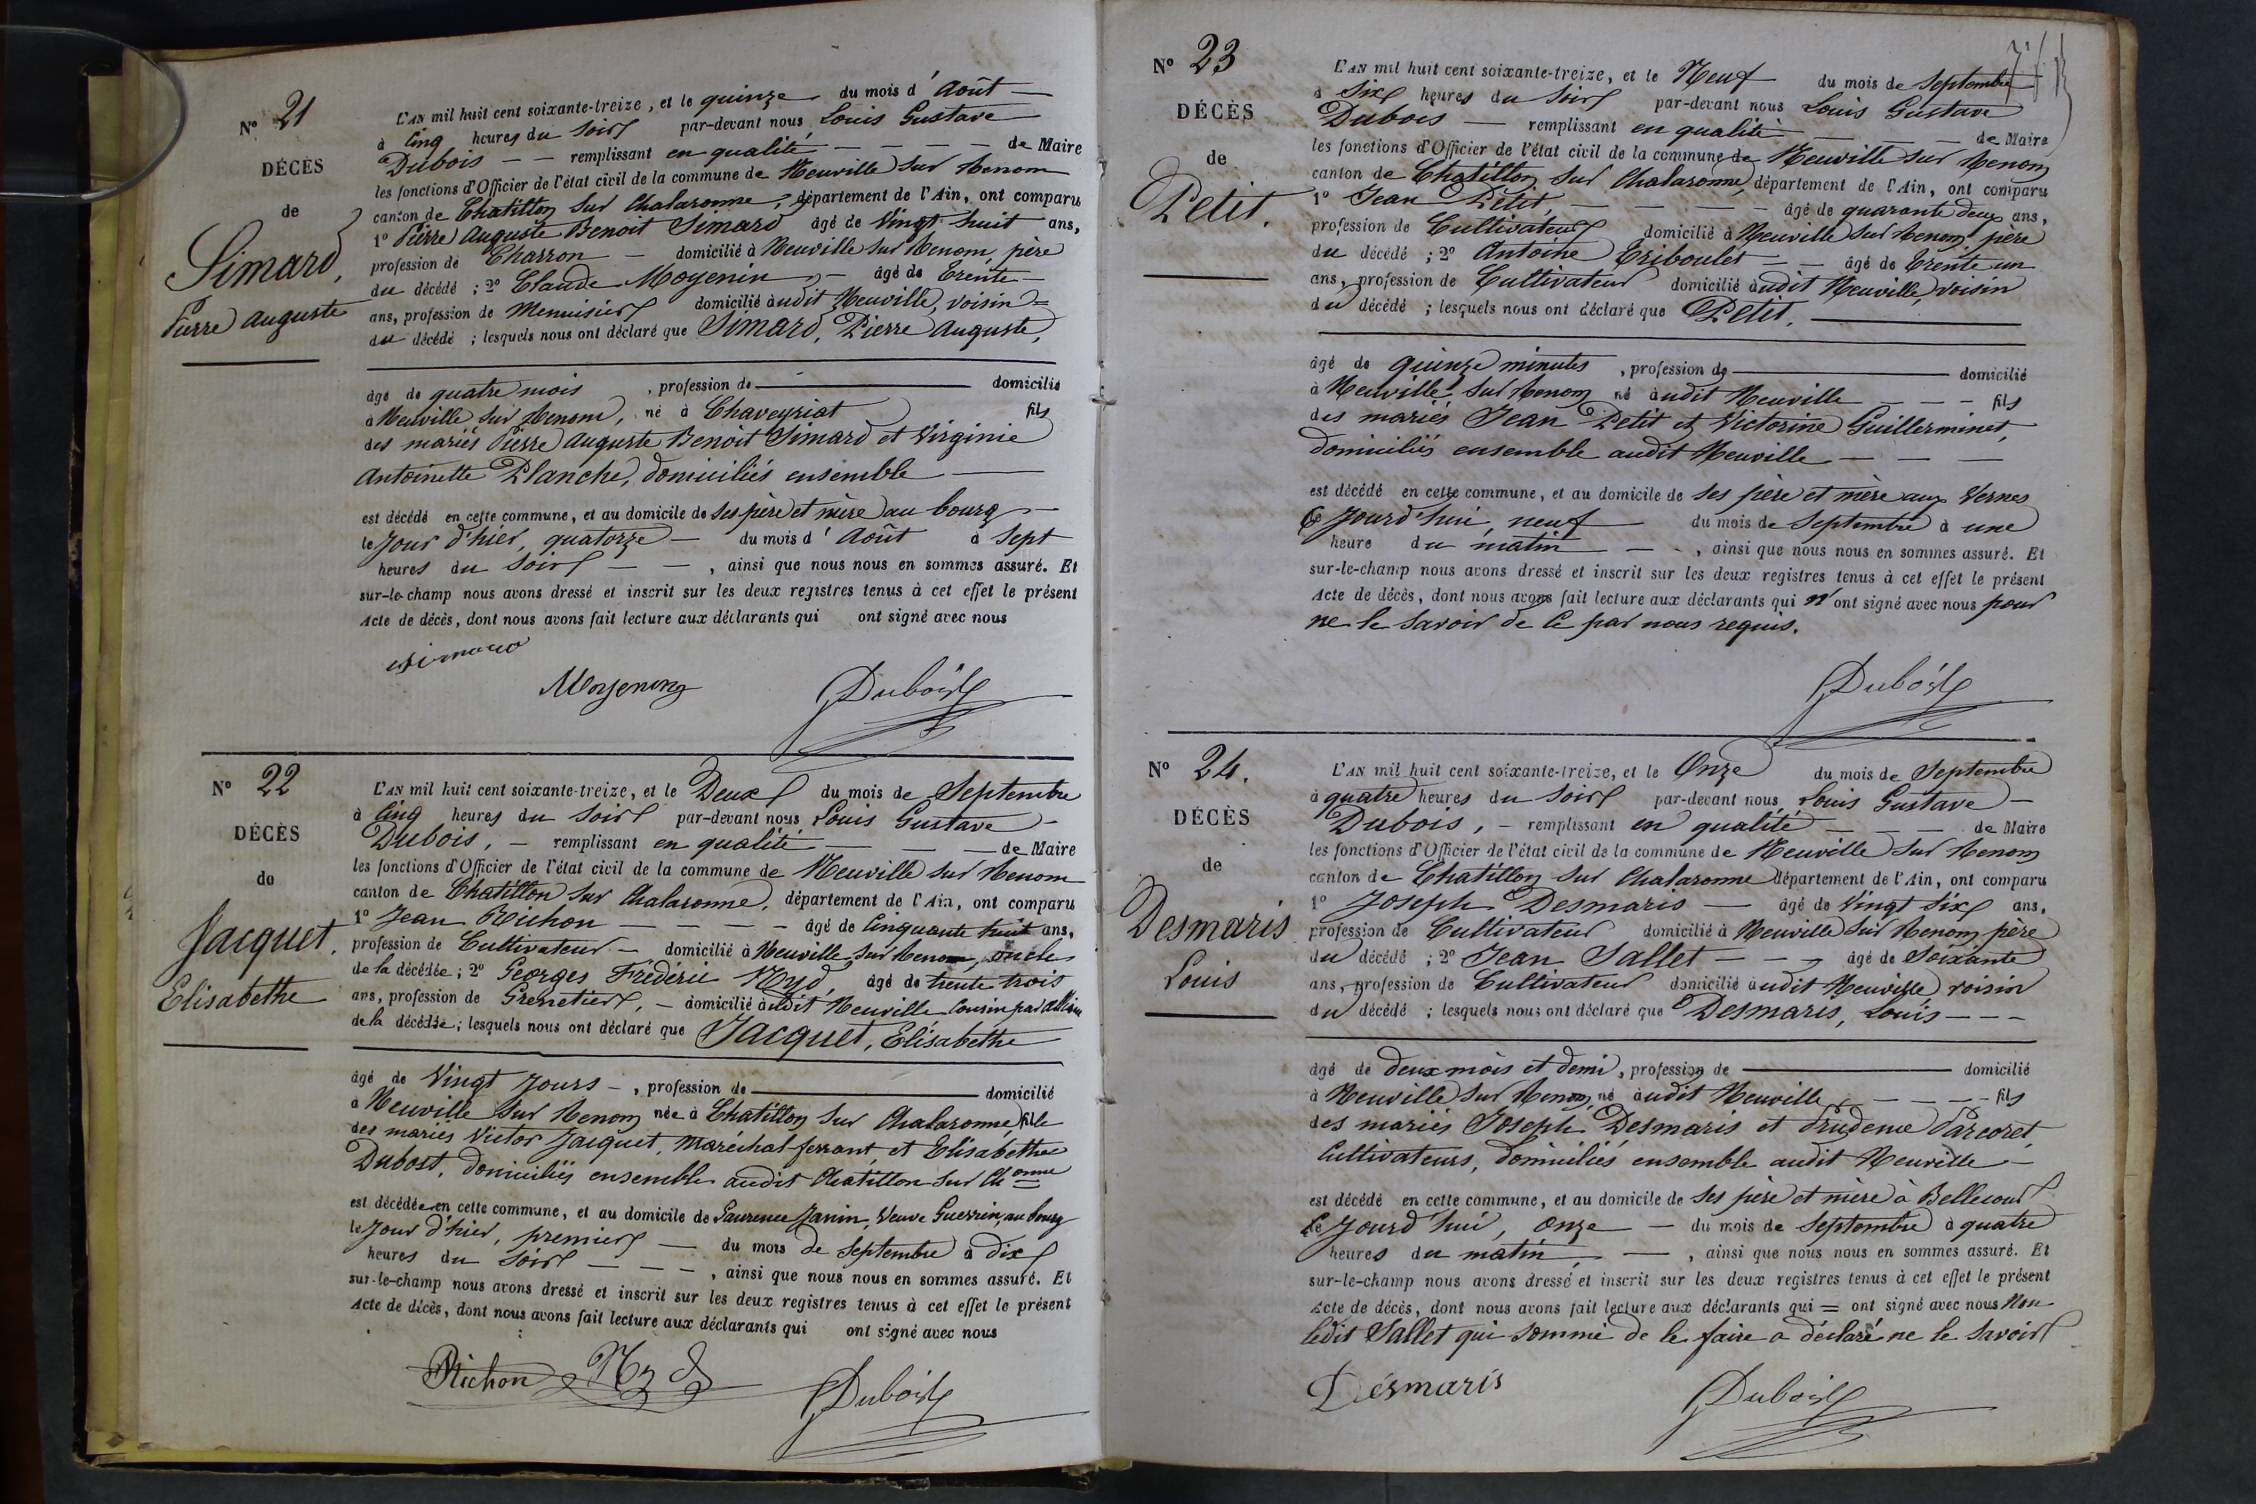 Nº 21
DÉCÈS
de
Simard,
Pierre Auguste
L'AN mil huit cent soixante-treize, et le quinze du mois d'Août
à cinq heures du soir par-devant nous Louis Gustave
Dubois remplissant en qualité de Maire
les fonctions d'Officier de l'état civil de la commune de Neuville sur Renom
canton de Chatillon sur Chalaronne, département de l'Ain, ont comparu
1º Pierre Auguste Benoit Simard âgé de Vingt huit ans,
profession de Charron domicilié à Neuville sur Renom, père
du décédé ; 2º Claude Moyenin âgé de trente
ans, profession de Menuisier domicilié audit Neuville, voisin
du décédé ; lesquels nous ont déclaré que Simard, Pierre Auguste,
âgé de quatre mois, profession de domicilié
à Neuville sur Renom, né à Chaveyriat fils
des mariés Pierre Auguste Benoit Simard et Virginie
Antoinette Planche, domiciliés ensemble
est décédé en cette commune, et au domicile de ses père et mère au bourg
le Jour d'hier, quatorze du mois d'Août à Sept
heures du Soir, ainsi que nous nous en sommes assuré. Et
sur-le-champ nous avons dressé et inscrit sur les deux registres tenus à cet effet le présent
Acte de décès, dont nous avons fait lecture aux déclarants qui ont signé avec nous
Simard
Moyenin Dubois
Nº 22
DÉCÈS
de
Jacquet.
Elisabethe
L'AN mil huit cent soixante-treize, et le Deux du mois de Septembre
à cinq heures du soir par-devant nous Louis Gustave
Dubois, remplissant en qualité de Maire
les fonctions d'Officier de l'état civil de la commune de Neuville sur Renom
canton de Chatillon sur Chalaronne, département de l'Ain, ont comparu
1º Jean Richon âgé de Cinquante huit ans,
profession de Cultivateur domicilié à Neuville sur Renom, oncle
de la décédée ; 2º Georges Frédéric Nyd, âgé de trente trois
ans, profession de Grenetier, domicilié audit Neuville Cousin par alliance
de la décédée ; lesquels nous ont déclaré que Jacquet, Elisabethe
âgé de Vingt Jours, profession de domicilié
à Neuville sur Renom née à Chatillon sur Chalaronne, fille
des mariés Victor Jacquet, maréchal-ferrant et Elisabethe
Dubost, domiciliés ensemble audit Chatillon sur Chonne
est décédée en cette commune, et au domicile de Laurence Janin, Veuve Guerrin, au bourg
le Jour d'hier, premier du mois de Septembre à dix
heures du soir, ainsi que nous nous en sommes assuré. Et
sur-le-champ nous avons dressé et inscrit sur les deux registres tenus à cet effet le présent
Acte de décès, dont nous avons fait lecture aux déclarants qui ont signé avec nous
Richon Nyd Dubois
Nº 23
DÉCÈS
de
Petit.
L'AN mil huit cent soixante-treize, et le Neuf du mois de Septembre
à Six heures du Soir par-devant nous Louis Gustave
Dubois remplissant en qualité de Maire
les fonctions d'Officier de l'état civil de la commune de Neuville sur Renom
canton de Chatillon sur Chalaronne, département de l'Ain, ont comparu
1º Jean Petit, âgé de quarante deux ans,
profession de Cultivateur domicilié à Neuville sur Renom père
du décédé ; 2º Antoine Triboulet âgé de trente un
ans, profession de Cultivateur domicilié audit Neuville, voisin
du décédé ; lesquels nous ont déclaré que Petit.
âgé de quinze minutes, profession de domicilié
à Neuville sur Renom né audit Neuville fils
des mariés Jean Petit et Victorine Guillerminet,
domiciliés ensemble audit Neuville
est décédé en cette commune, et au domicile de ses père et mère aux Vernes
Ce Jourd'hui, neuf du mois de Septembre à une
heure du matin, ainsi que nous nous en sommes assuré. Et
sur-le-champ nous avons dressé et inscrit sur les deux registres tenus à cet effet le présent
Acte de décès, dont nous avons fait lecture aux déclarants qui n'ont signé avec nous pour
ne le savoir de ce par nous requis.
Dubois
Nº 24.
DÉCÈS
de
Desmaris
Louis
L'AN mil huit cent soixante-treize, et le Onze du mois de Septembre
à quatre heures du soir par-devant nous Louis Gustave
Dubois, remplissant en qualité de Maire
les fonctions d'Officier de l'état civil de la commune de Neuville sur Renom
canton de Chatillon sur Chalaronne département de l'Ain, ont comparu
1º Joseph Desmaris âgé de Vingt six ans,
profession de Cultivateur domicilié à Neuville sur Renom père
du décédé ; 2º Jean Sallet âgé de Soixante
ans, profession de Cultivateur domicilié audit Neuville, voisin
du décédé ; lesquels nous ont déclaré que Desmaris, Louis
âgé de deux mois et demi, profession de domicilié
à Neuville sur Renom, né audit Neuville, fils
des mariés Joseph Desmaris et Prudence Parcoret
Cultivateurs, domiciliés ensemble audit Neuville
est décédé en cette commune, et au domicile de ses père et mère à Bellecour
Ce Jourd'hui, onze du mois de Septembre à quatre
heures du matin, ainsi que nous nous en sommes assuré. Et
sur-le-champ nous avons dressé et inscrit sur les deux registres tenus à cet effet le présent
Acte de décès, dont nous avons fait lecture aux déclarants qui = ont signé avec nous Non
ledit Sallet qui sommé de le faire a déclaré ne le savoir
Desmaris Dubois